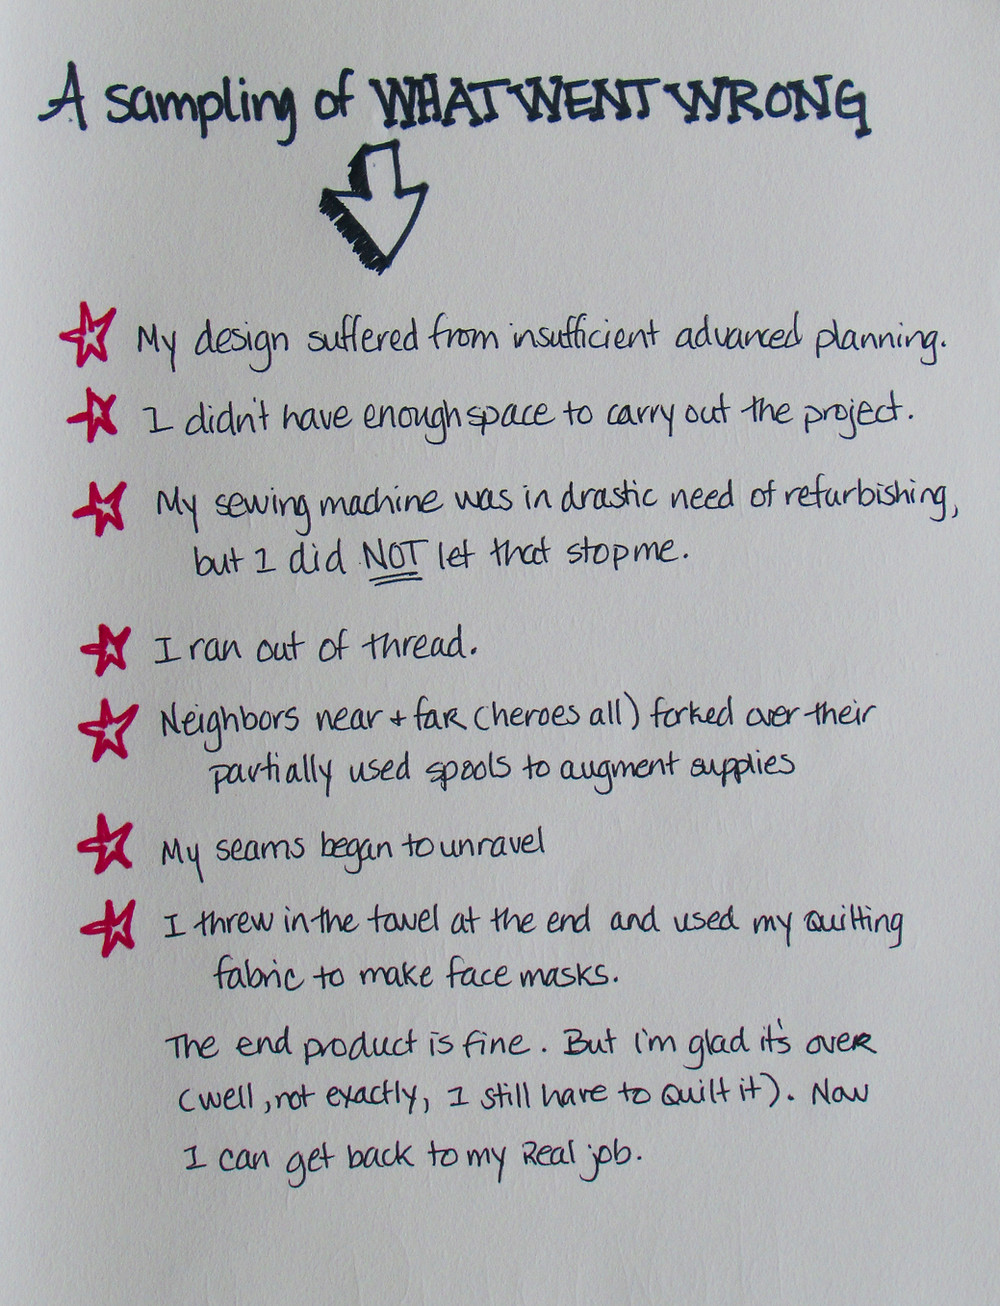 A sampling of WHAT WENT WRONG
My design suffered from insufficient advanced planning.
I didn't have enough space to carry out the project.
My sewing machine was in drastic need of refurbishing,
but I did NOT let that stop me.
I ran out of thread.
Neighbors near + far (heroes all) forked over their
partially used spools to augment supplies
My seams began to unravel
I threw in the towel at the end and used my quilting
fabric to make face masks.
The end product is fine. But i'm glad it's over
(well, not exactly, I still have to quilt it). Now
I can get back to my Real job.